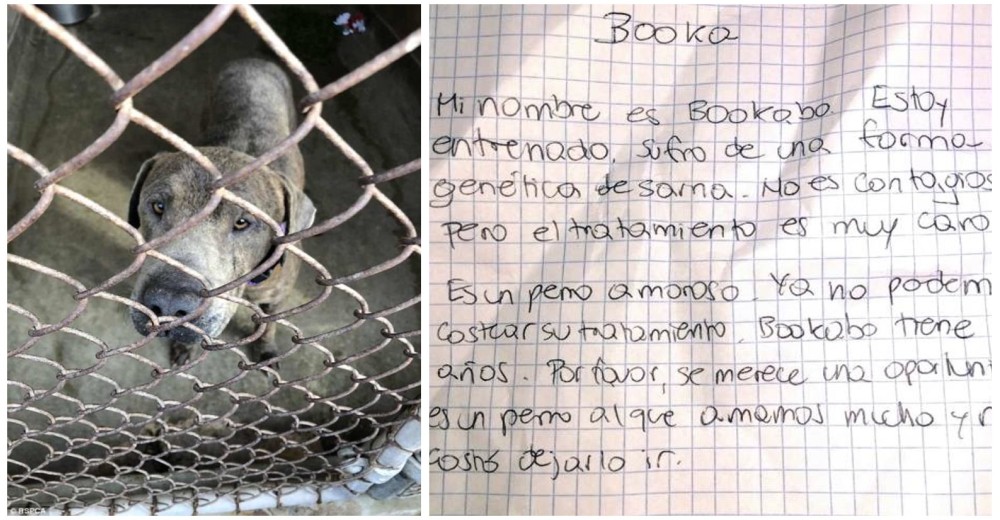 © RSPCA
Booka
Mi nombre es Bookabo. Estoy
entrenado, sufro de una forma
genética de sarna. No es contagios
pero el tratamiento es muy caro
Es un perro amoroso. Ya no podem
costear su tratamiento. Bookabo tiene
años. Por favor, se merece una oportun
es un perro al que amamos mucho y n
costó dejarlo ir.